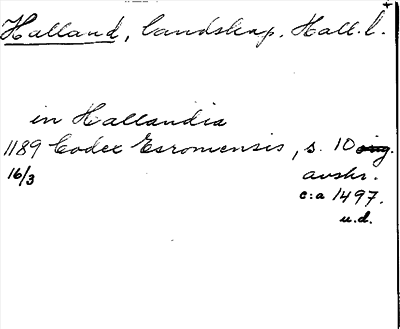 Halland, landskap. Hall. l.
in Hallandia
1189 Codex Esromensis, s. 10
16/3 avskr.
c:a 1497.
u.d.